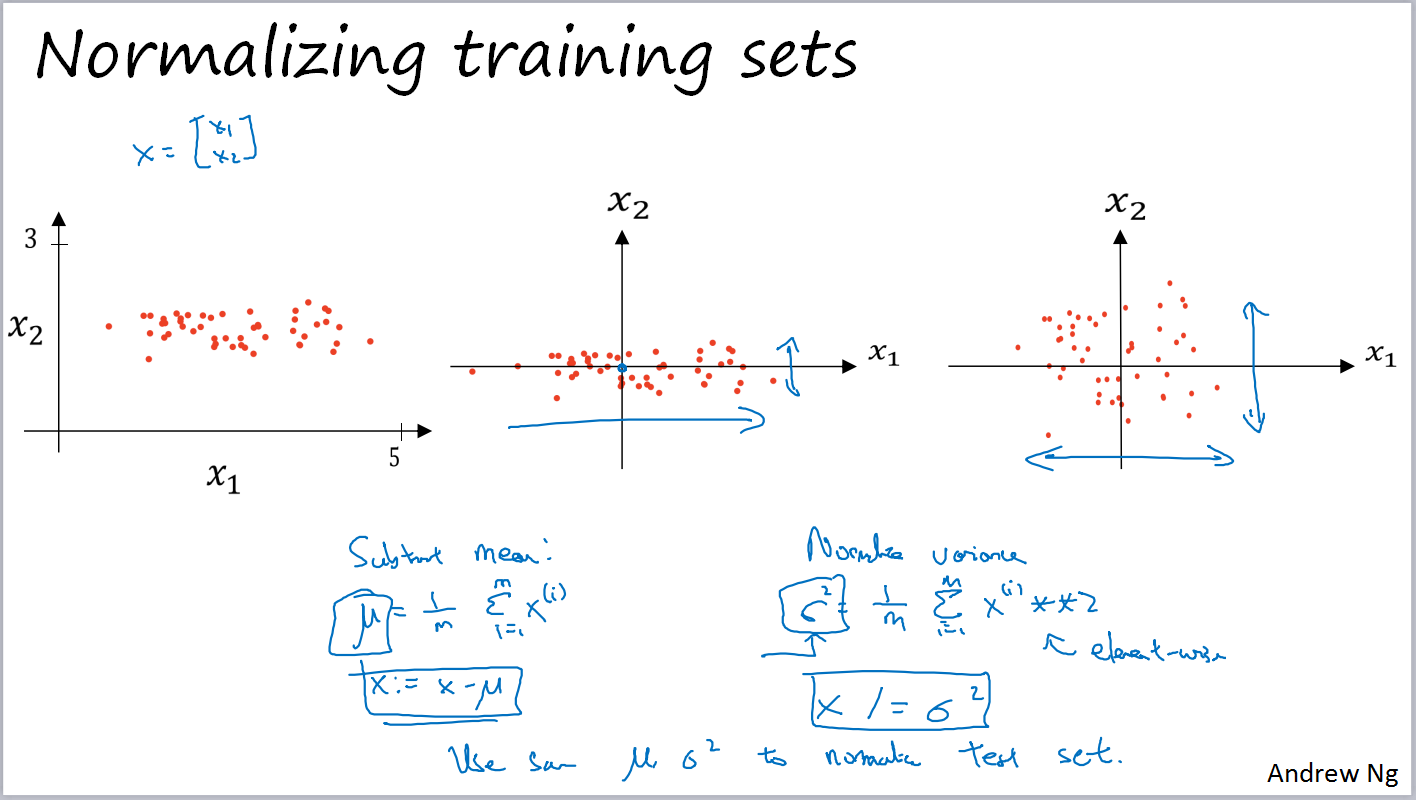 Normalizing training sets
x = [x1 x2]
3
x2
5
x1
x2
x1
x2
x1
Subtract mean:
μ = 1/m Σ_{i=1}^{m} x^(i)
x := x - μ
Normalize variance
σ² = 1/m Σ_{i=1}^{m} x^(i) ** 2
element-wise
x /= σ²
Use same μ, σ² to normalize test set.
Andrew Ng